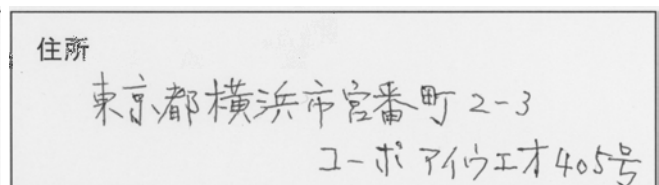 住所
東京都横浜市宮番町2-3
コーポアイウエオ405号